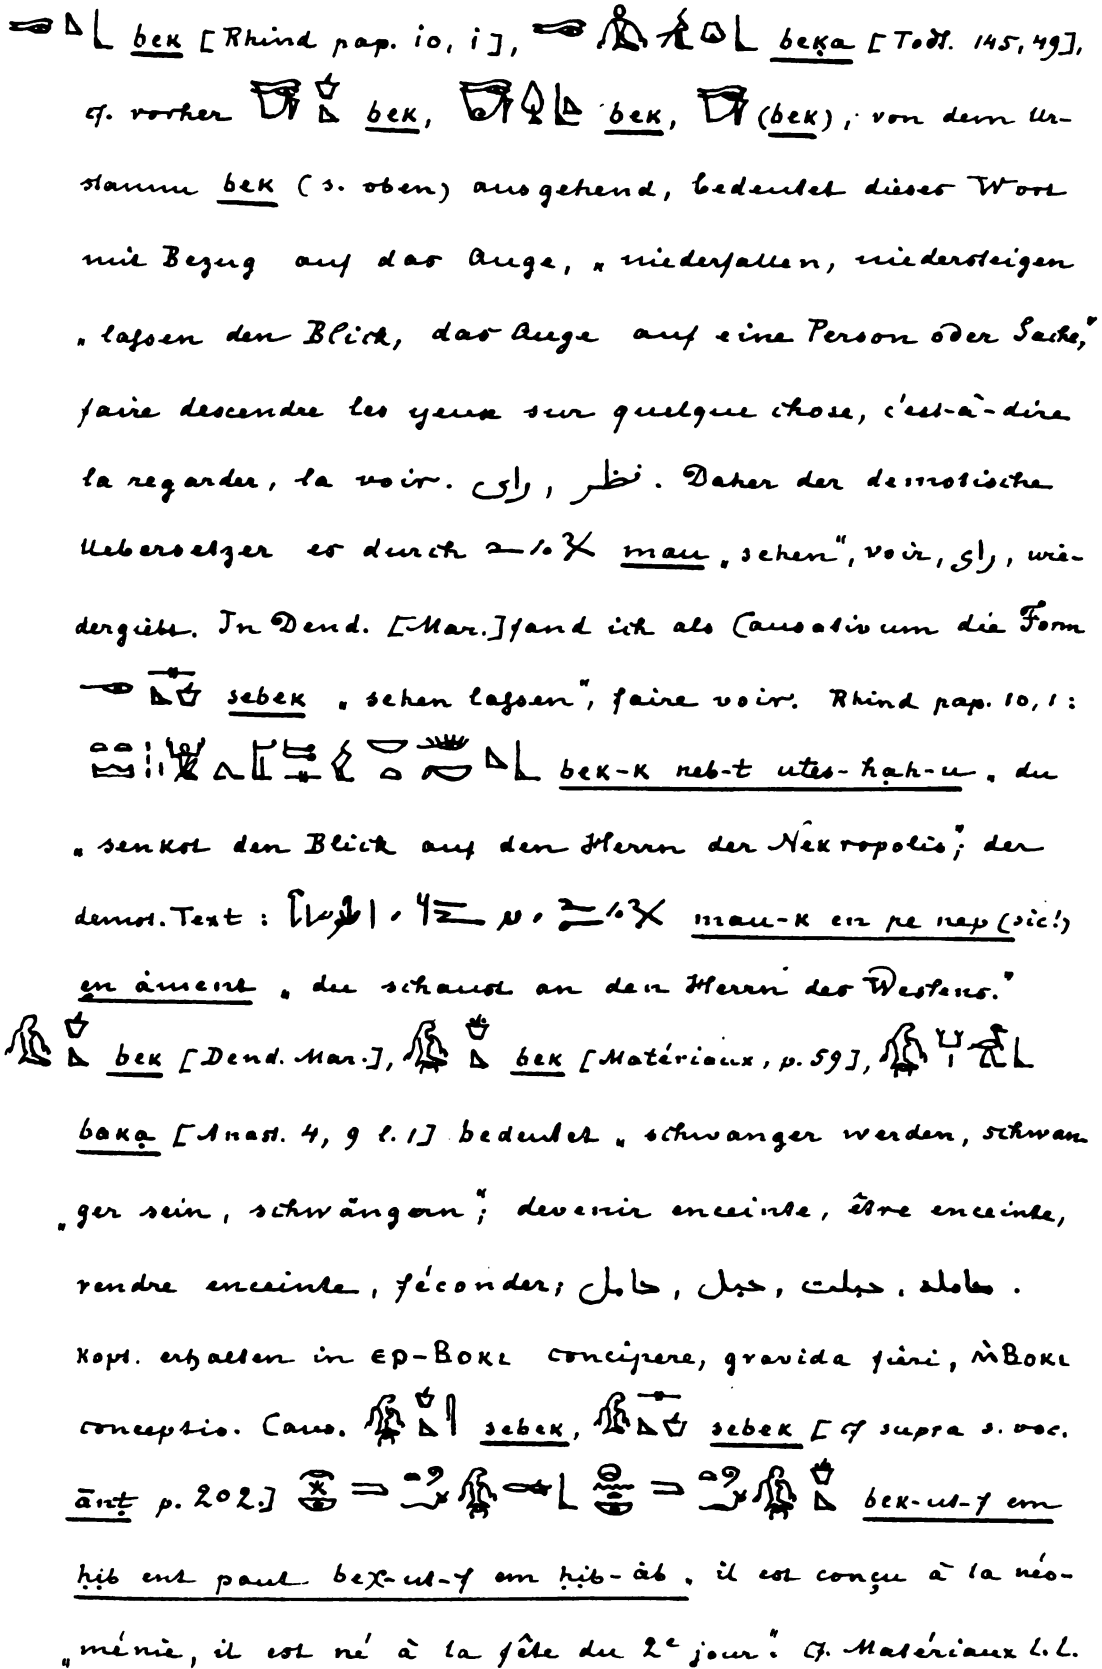 bek [Rhind pap. 10, 1], beḳa [Todt. 145, 49],
cf. vorher bek, bek, (bek), von dem Ur-
stamm bek (s. oben) ausgehend, bedeutet dieses Wort
mit Bezug auf das Auge, „niederfallen, niedersteigen
„lassen den Blick, das Auge auf eine Person oder Sache,"
faire descendre les yeux sur quelque chose, c'est-à-dire
la regarder, la voir. نظر , راى. Daher der demotische
Uebersetzer es durch mau „sehen", voir, راى, wie-
dergiebt. In Dend. [Mar.] fand ich als Causativum die Form
sebek „sehen lassen", faire voir. Rhind pap. 10, 1:
bek-k neb-t utes-ḥaḥ-u „du
„senkst den Blick auf den Herrn der Nekropolis"; der
demot. Text: mau-k en pe neb (sic!)
en àment „du schaust an den Herrn des Westens."
bek [Dend. Mar.], bek [Matériaux, p. 59],
baka [Anast. 4, 9 l. 1] bedeutet „schwanger werden, schwan-
„ger sein, schwängern"; devenir enceinte, être enceinte,
rendre enceinte, féconder; حامل , حبل , حبلت , حامله .
Kopt. erhalten in ⲉⲣ-ⲃⲟⲕⲓ concipere, gravida fieri, ⲙ̀ⲃⲟⲕⲓ
conceptio. Caus. sebek, sebek [cf supra s. voc.
ānṭ p. 202.] bek-ut-f em
ḥib ent paut beχ-ut-f em ḥib-àb „il est conçu à la néo-
„ménie, il est né à la fête du 2e jour". Cf. Matériaux l.l.